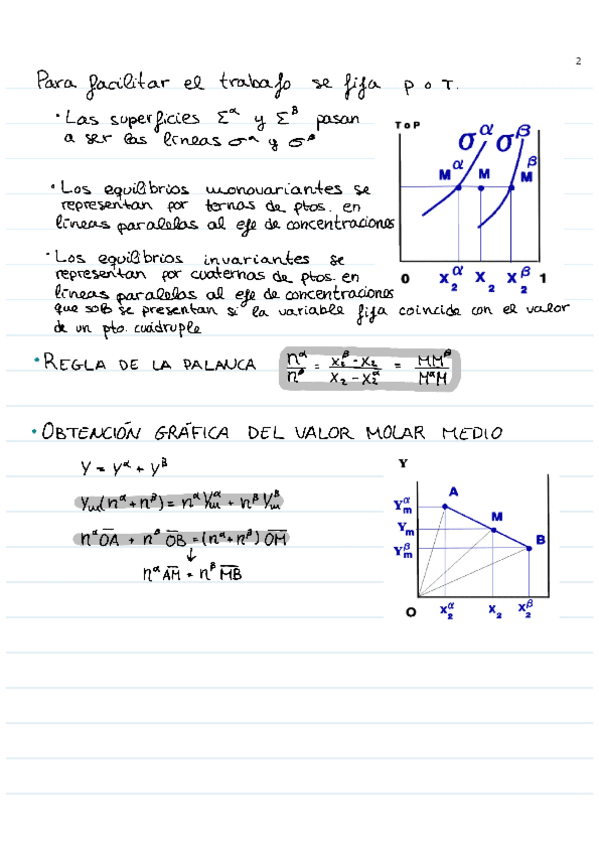 2
Para facilitar el trabajo se fija p o T.
· Las superficies Σ^α y Σ^β pasan
a ser las líneas σ^α y σ^β
T o P
σ^α σ^β
M^α M M^β
0 X₂^α X₂ X₂^β 1
· Los equilibrios monovariantes se
representan por ternas de ptos. en
líneas paralelas al eje de concentraciones
· Los equilibrios invariantes se
representan por cuaternas de ptos. en
líneas paralelas al eje de concentraciones
que solo se presentan si la variable fija coincide con el valor
de un pto. cuádruple
· REGLA DE LA PALANCA n^α/n^β = (X₂^β - X₂)/(X₂ - X₂^α) = MM^β/M^αM
· OBTENCIÓN GRÁFICA DEL VALOR MOLAR MEDIO
Y = Y^α + Y^β
Y_m(n^α + n^β) = n^α Y_m^α + n^β Y_m^β
n^α O̅A̅ + n^β O̅B̅ = (n^α + n^β) O̅M̅
↓
n^α A̅M̅ = n^β M̅B̅
Y
A
Y_m^α
M
Y_m
B
Y_m^β
O X₂^α X₂ X₂^β